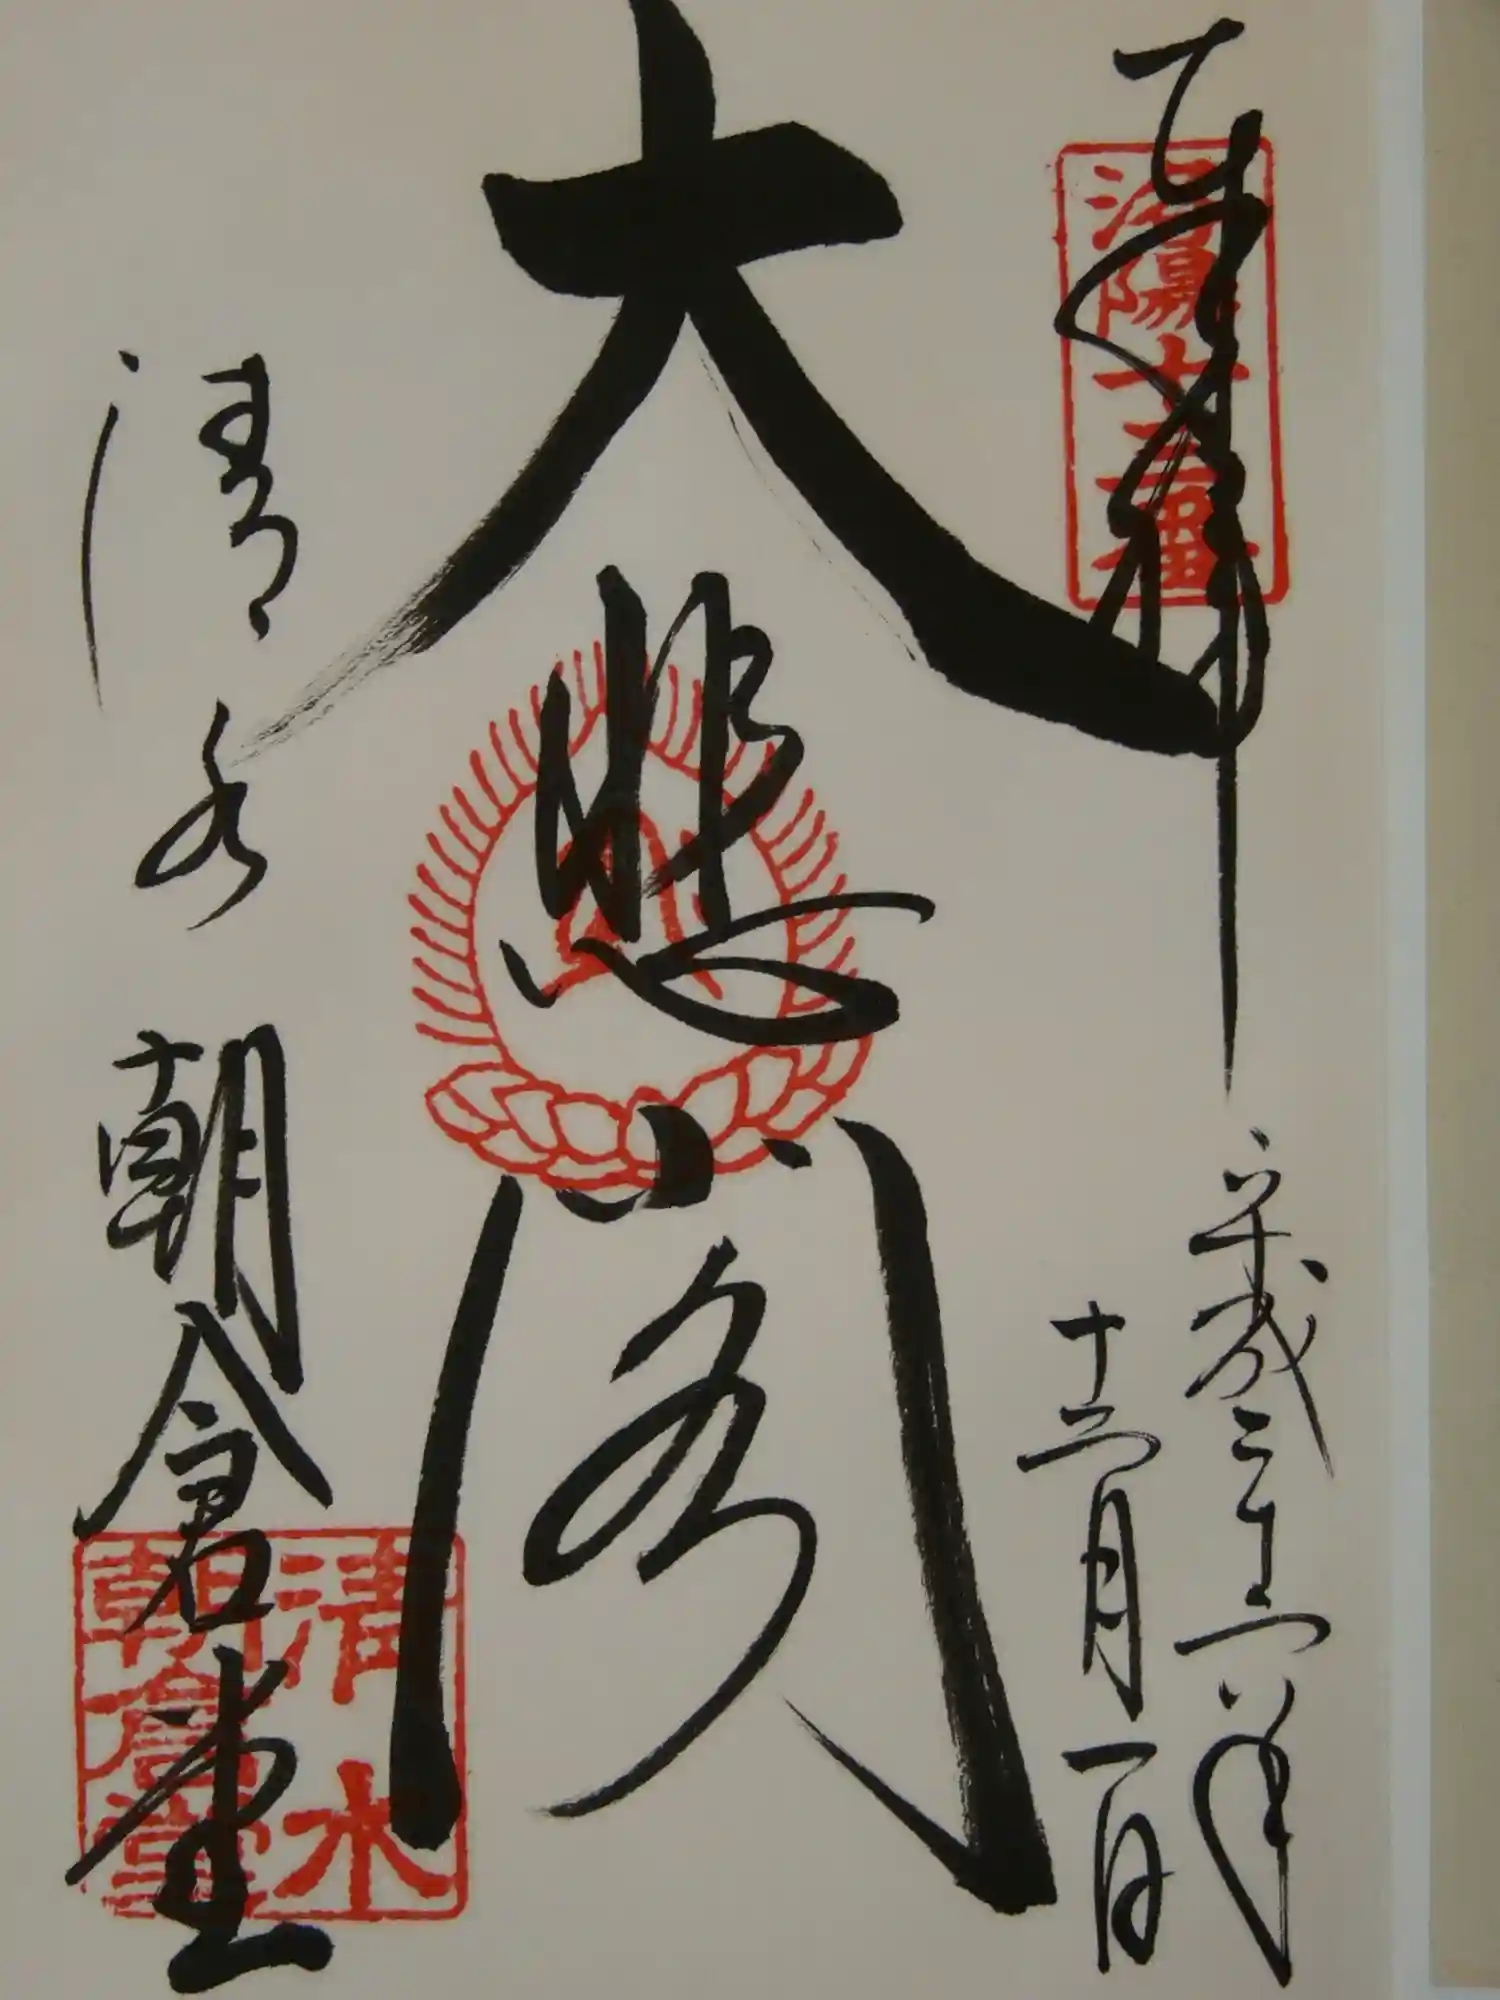 奉拝
洛陽十三番
平成二十年
十二月一日
大悲閣
清水
朝倉堂
清水
朝倉堂